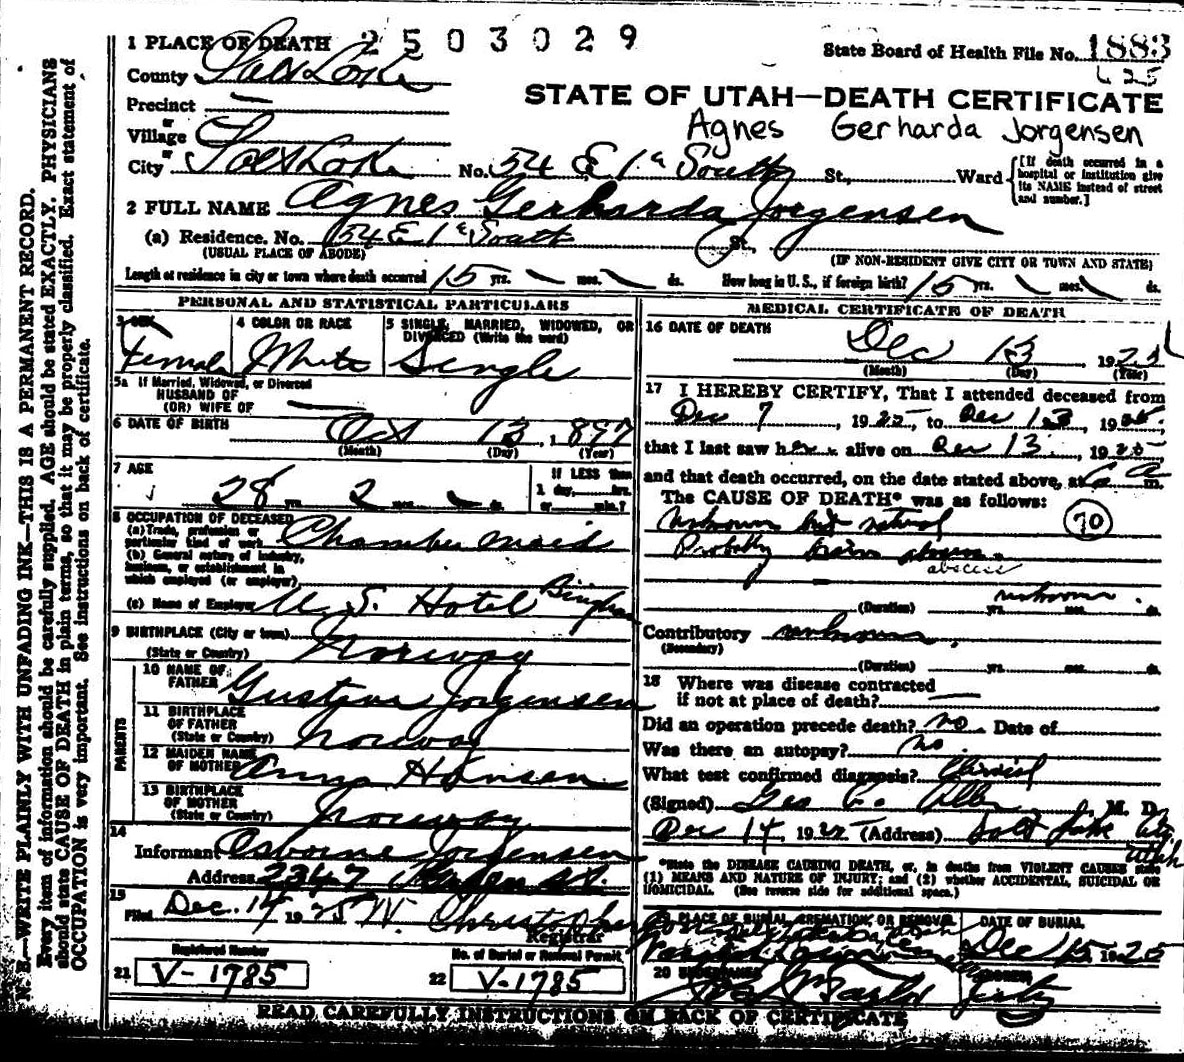 1 PLACE OF DEATH 2503029
State Board of Health File No. 1883
County Salt Lake
625
STATE OF UTAH—DEATH CERTIFICATE
Precinct —
or
Village
Agnes Gerharda Jorgensen
or
City Salt Lake No. 54 E 1st South St., Ward
[If death occurred in a hospital or institution give its NAME instead of street and number.]
2 FULL NAME Agnes Gerharda Jorgensen
(a) Residence. No. 54 E 1st South St.
(USUAL PLACE OF ABODE) (IF NON-RESIDENT GIVE CITY OR TOWN AND STATE)
Length of residence in city or town where death occurred 15 yrs. mos. ds. How long in U. S., if foreign birth? 15 yrs. mos. ds.
PERSONAL AND STATISTICAL PARTICULARS
3 SEX
Female
4 COLOR OR RACE
White
5 SINGLE, MARRIED, WIDOWED, OR DIVORCED (Write the word)
Single
5a If Married, Widowed, or Divorced
HUSBAND OF
(OR) WIFE OF —
6 DATE OF BIRTH Oct 13, 1897
(Month) (Day) (Year)
7 AGE
28 yrs. 2 mos. ds.
If LESS than
1 day, hrs.
or min.?
8 OCCUPATION OF DECEASED
(a) Trade, profession or
particular kind of work Chamber maid
(b) General nature of industry,
business, or establishment in
which employed (or employer)
(c) Name of Employer U. S. Hotel Bingham
9 BIRTHPLACE (City or town)
(State or Country) Norway
PARENTS
10 NAME OF
FATHER Gustave Jorgensen
11 BIRTHPLACE
OF FATHER
(State or Country) Norway
12 MAIDEN NAME
OF MOTHER Hansen
13 BIRTHPLACE
OF MOTHER
(State or Country) Norway
14
Informant Osborne Jorgensen
Address 2347
15
Filed Dec. 14 1925 W. Christopherson
Registrar
Registered Number No. of Burial or Removal Permit
21 V-1785 22 V-1785
MEDICAL CERTIFICATE OF DEATH
16 DATE OF DEATH
Dec 13 1925
(Month) (Day) (Year)
17 I HEREBY CERTIFY, That I attended deceased from
Dec 7, 1925, to Dec 13 1925.
that I last saw her alive on Dec 13, 1925
and that death occurred, on the date stated above, at 6 a m.
The CAUSE OF DEATH* was as follows:
unknown but natural
70
Probably brain abscess.
abscess
(Duration) yrs. mos. ds. unknown.
Contributory unknown.
(Secondary)
(Duration) yrs. mos. ds.
18 Where was disease contracted
if not at place of death? —
Did an operation precede death? no Date of
Was there an autopsy? no.
What test confirmed diagnosis? Clinical
(Signed) Geo. , M. D.
Dec 14, 1925 (Address) Salt Lake City,
Utah
*State the DISEASE CAUSING DEATH, or, in deaths from VIOLENT CAUSES state
(1) MEANS AND NATURE OF INJURY; and (2) whether ACCIDENTAL, SUICIDAL OR
HOMICIDAL. (See reverse side for additional space.)
PLACE OF BURIAL, CREMATION, OR REMOVAL
DATE OF BURIAL
Dec 15, 1925
20
READ CAREFULLY INSTRUCTIONS ON BACK OF CERTIFICATE
N. B.—WRITE PLAINLY WITH UNFADING INK—THIS IS A PERMANENT RECORD.
Every item of information should be carefully supplied. AGE should be stated EXACTLY. PHYSICIANS
should state CAUSE OF DEATH in plain terms, so that it may be properly classified. Exact statement of
OCCUPATION is very important. See instructions on back of certificate.